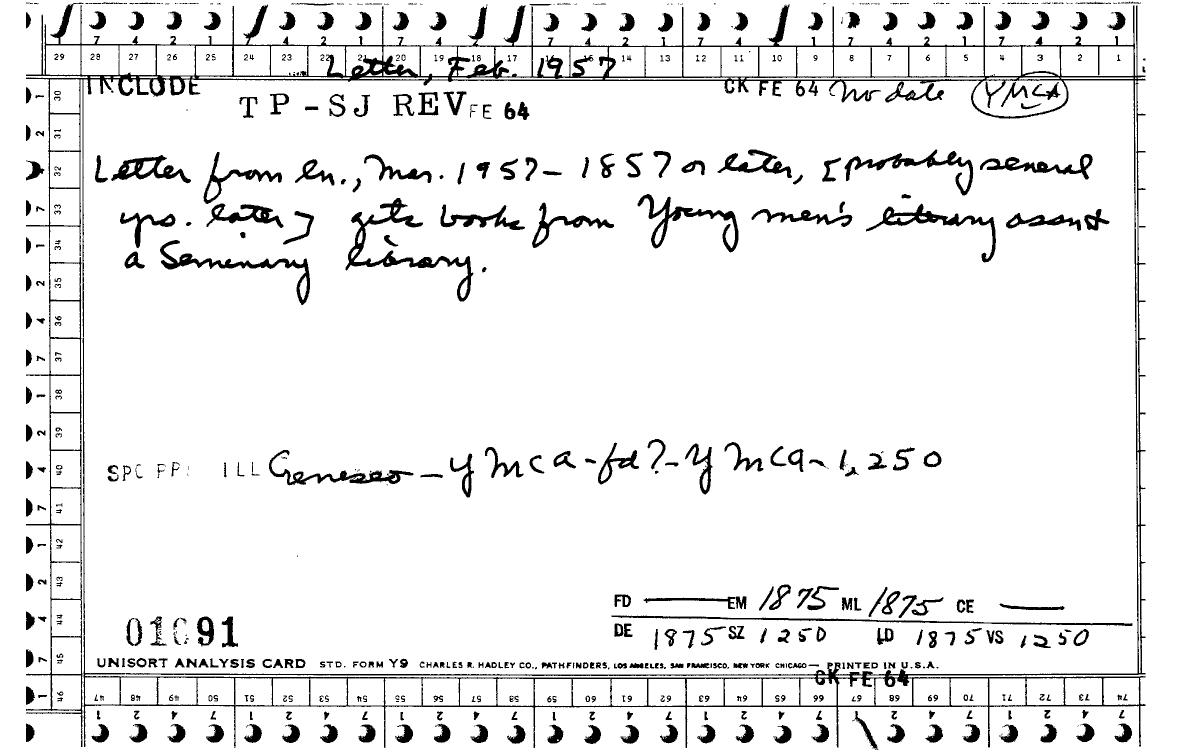 7 4 2 1 7 4 2 1 7 4 2 1 7 4 2 1 7 4 2 1 7 4 2 1 7 4 2 1
29 28 27 26 25 24 23 22 21 20 19 18 17 16 15 14 13 12 11 10 9 8 7 6 5 4 3 2 1
Letter, Feb. 1957
INCLUDE TP-SJ REV FE 64 CK FE 64 no date YMCA
Letter from ln., Mar. 1957 - 1857 or later, [probably several
yrs. later] gets books from Young men's literary assn &
a Seminary library.
SPC PP: ILL Geneseo - YMCA - fd? - YMCA - 1,250
FD — EM 1875 ML 1875 CE —
DE 1875 SZ 1250 LD 1875 VS 1250
01091
UNISORT ANALYSIS CARD STD. FORM Y9 CHARLES R. HADLEY CO., PATHFINDERS, LOS ANGELES, SAN FRANCISCO, NEW YORK CHICAGO — PRINTED IN U.S.A.
CK FE 64
30 31 32 33 34 35 36 37 38 39 40 41 42 43 44 45 46
47 48 49 50 51 52 53 54 55 56 57 58 59 60 61 62 63 64 65 66 67 68 69 70 71 72 73 74
1 2 4 7 1 2 4 7 1 2 4 7 1 2 4 7 1 2 4 7 1 2 4 7 1 2 4 7